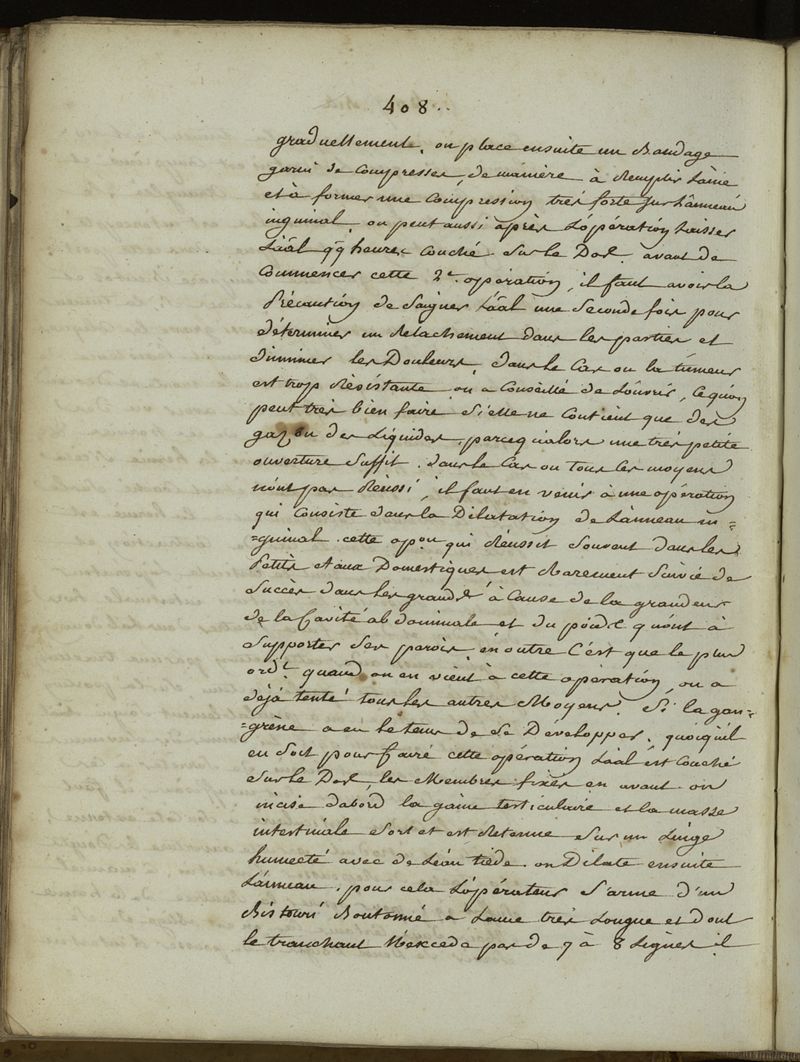 408..
graduellement. on place ensuite un Bandage
garni de Compresses, de maniere à Remplir L'aine
et à former une Compression très forte sur L'anneau
inguinal. on peut aussi après L'opération Laisser
L'aâl qq heures Couché sur le Dos. avant de
Commencer cette 2e. opération, il faut avoir la
Précaution de Saigner L'aâl une seconde fois pour
déterminer un Relachement dans les parties et
diminuer les Douleurs, dans le Cas ou la tumeur
est trop Résistante on a Conseillé de L'ouvrir, Ce qu'on
peut très bien faire Si elle ne Contient que des
gaz ou des Liquides. parcequ'alors une très petite
ouverture Suffit. dans le Cas ou tous les moyens
n'ont pas Réussi, il faut en venir à une opération
qui Consiste dans la Dilatation de L'anneau in=
=guinal. cette opon. qui Réussit Souvent dans les
Petits et aux Domestiques est Rarement Suivie de
Succès dans les grands à Cause de la grandeur
de la Cavité abdominale et du poids qu'ont à
Supporter Ses parois. en outre C'est que le plus
ordt. quand on en vient à cette opération, on a
déjà tenté tous les autres Moyens. Si la gan=
=grène a eu le tems de Se Développer. quoiqu'il
en Soit pour faire cette opération L'aâl est Couché
Sur le Dos, les Membres fixés en avant on
incise d'abord la gaine testiculaire et la masse
intestinale Sort et est Retenue Sur un Linge
humecté avec de L'eau tiède. on Dilate ensuite
L'anneau. pour cela L'opérateur S'arme d'un
Bistouri Boutonné a Lame très Longue et dont
le tranchant N'excede pas de 7 à 8 Lignes il